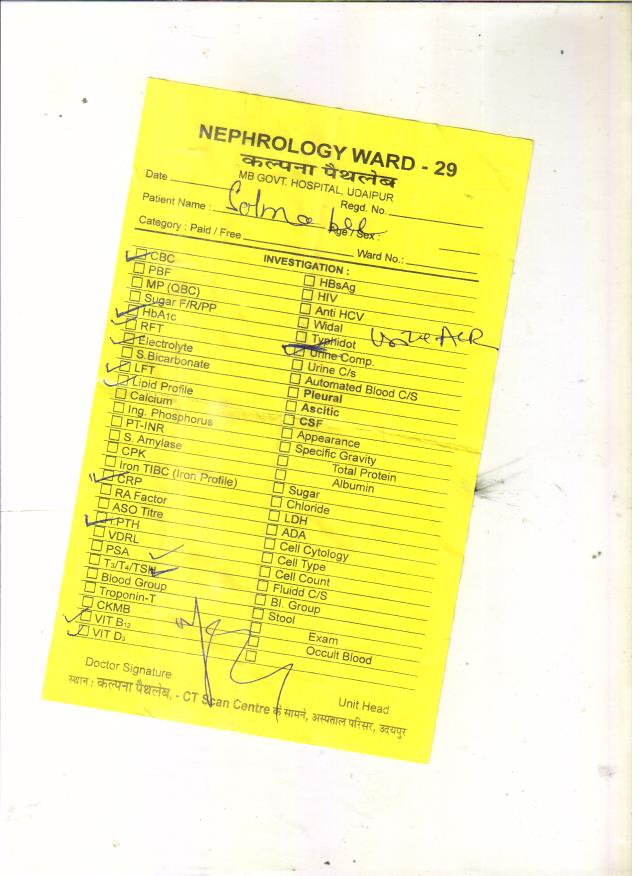 NEPHROLOGY WARD - 29
कल्पना पैथलेब
MB GOVT. HOSPITAL, UDAIPUR
Date
Regd. No.
Patient Name :
Age / Sex :
Category : Paid / Free
Ward No.:
INVESTIGATION :
CBC
PBF
MP (QBC)
Sugar F/R/PP
HbA1c
RFT
Electrolyte
S.Bicarbonate
LFT
Lipid Profile
Calcium
Ing. Phosphorus
PT-INR
S. Amylase
CPK
Iron TIBC (Iron Profile)
CRP
RA Factor
ASO Titre
I.PTH
VDRL
PSA
T3/T4/TSH
Blood Group
Troponin-T
CKMB
VIT B12
VIT D3
HBsAg
HIV
Anti HCV
Widal
Typhidot
Urine ACR
Urine Comp.
Urine C/s
Automated Blood C/S
Pleural
Ascitic
CSF
Appearance
Specific Gravity
Total Protein
Albumin
Sugar
Chloride
LDH
ADA
Cell Cytology
Cell Type
Cell Count
Fluidd C/S
Bl. Group
Stool
Exam
Occult Blood
Doctor Signature
Unit Head
स्थान : कल्पना पैथलेब, - CT Scan Centre के सामने, अस्पताल परिसर, उदयपुर